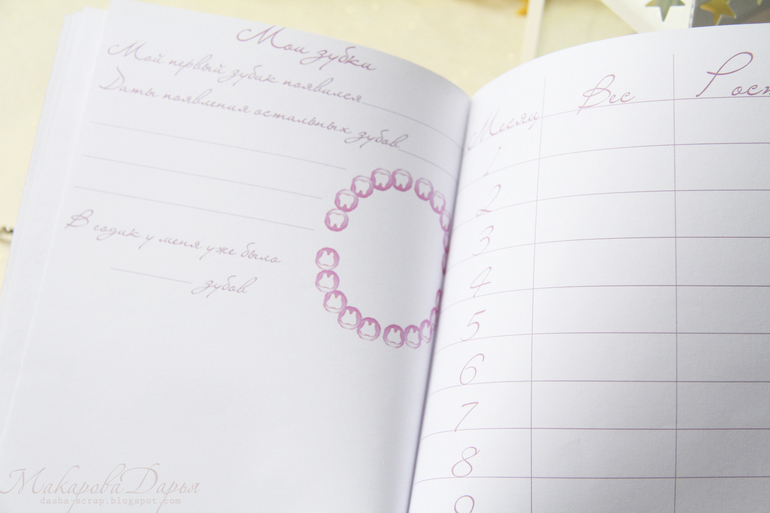 Мои зубки
Мой первый зубик появился
Даты появления остальных зубов
В годик у меня уже было
зубов
Месяц Вес
1
2
3
4
5
6
7
8
9
Макарова Дарья
dasha-scrap.blogspot.com